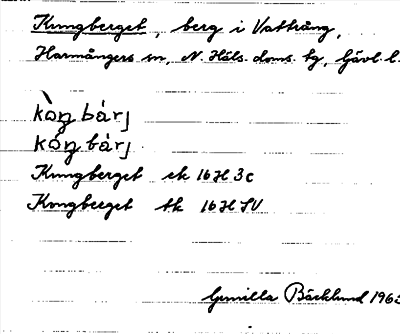 Kungberget, berg i Vattrång,
Harmångers sn, N. Häls. doms. tg, Gävl. l.
kòŋ bárj
kòŋ bárj
Kungberget ek 16H 3c
Kongberget tk 16H SV
Gunilla Bäcklund 1963